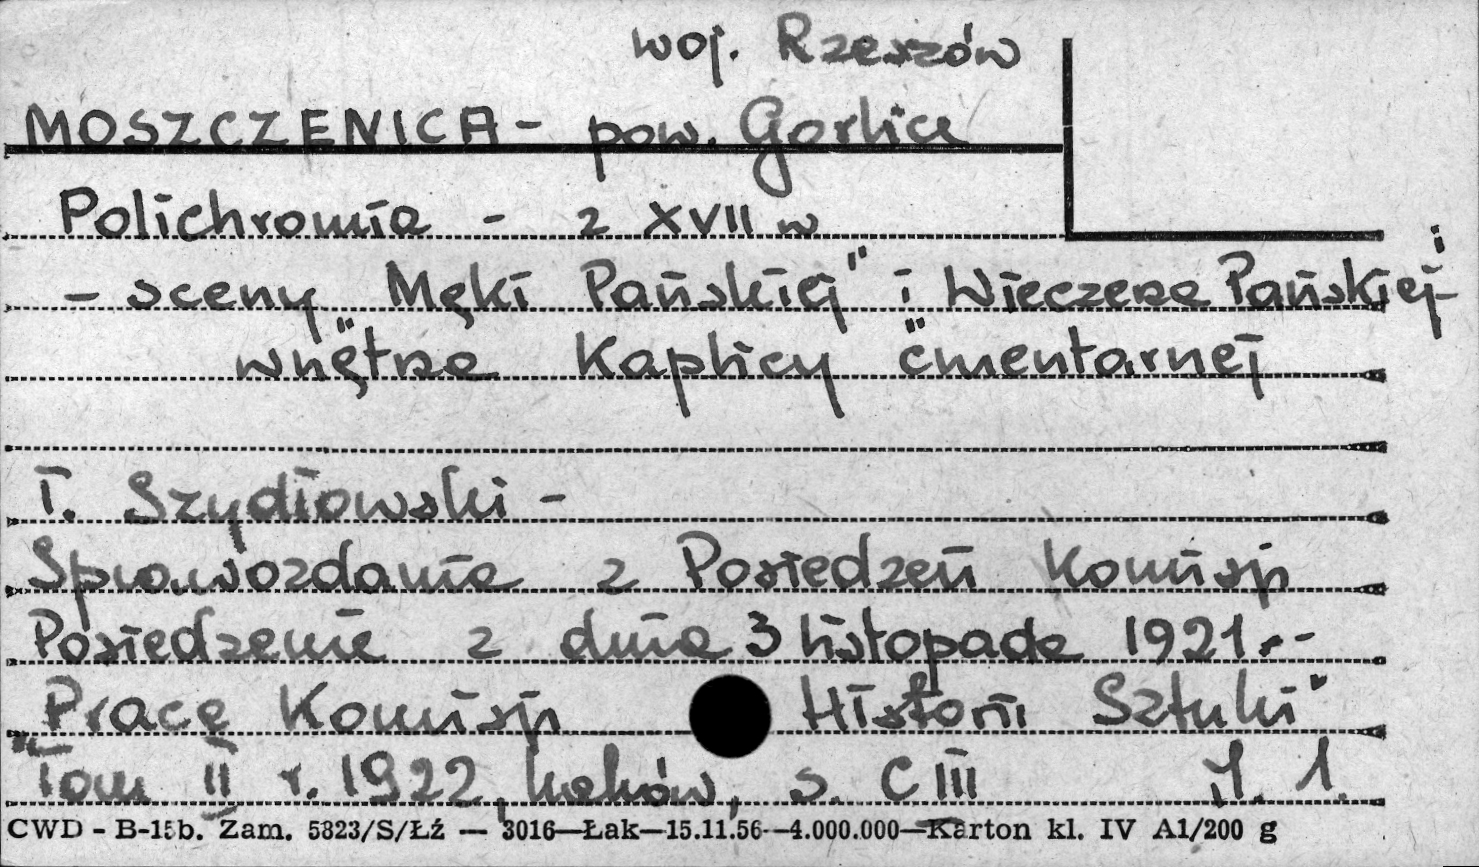 woj. Rzeszów
MOSZCZENICA - pow. Gorlice
Polichromia - z XVII w
- sceny "Męki Pańskiej" i "Wieczerza Pańskiej" -
wnętrze Kaplicy cmentarnej
T. Szydłowski -
Sprawozdanie z Posiedzeń Komisji
Posiedzenie z dnia 3 listopada 1921.-
"Pracę Komisji Historii Sztuki"
Tom II r. 1922, Kraków, s. CIII
CWD - B-15b. Zam. 5823/S/Łź — 3016—Łak—15.11.56—4.000.000—Karton kl. IV A1/200 g